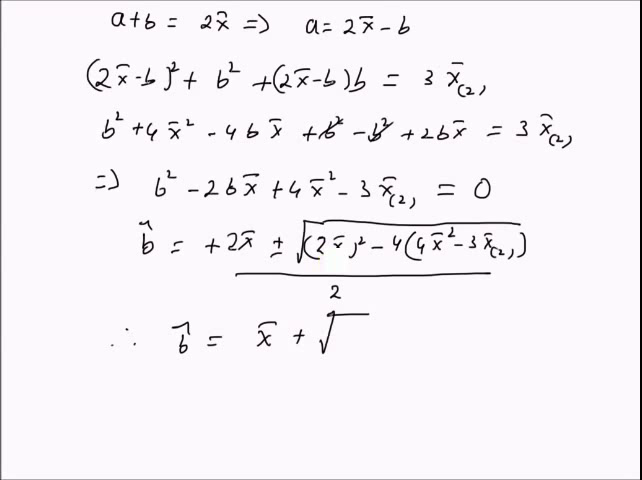 a+b = 2x̄ => a = 2x̄ - b
(2x̄-b)² + b² + (2x̄-b)b = 3 x̄₍₂₎
b² + 4x̄² - 4bx̄ + b² - b² + 2bx̄ = 3 x̄₍₂₎
=> b² - 2bx̄ + 4x̄² - 3x̄₍₂₎ = 0
b̂ = +2x̄ ± √((2x̄)² - 4(4x̄² - 3x̄₍₂₎))
2
∴ b̂ = x̄ + √